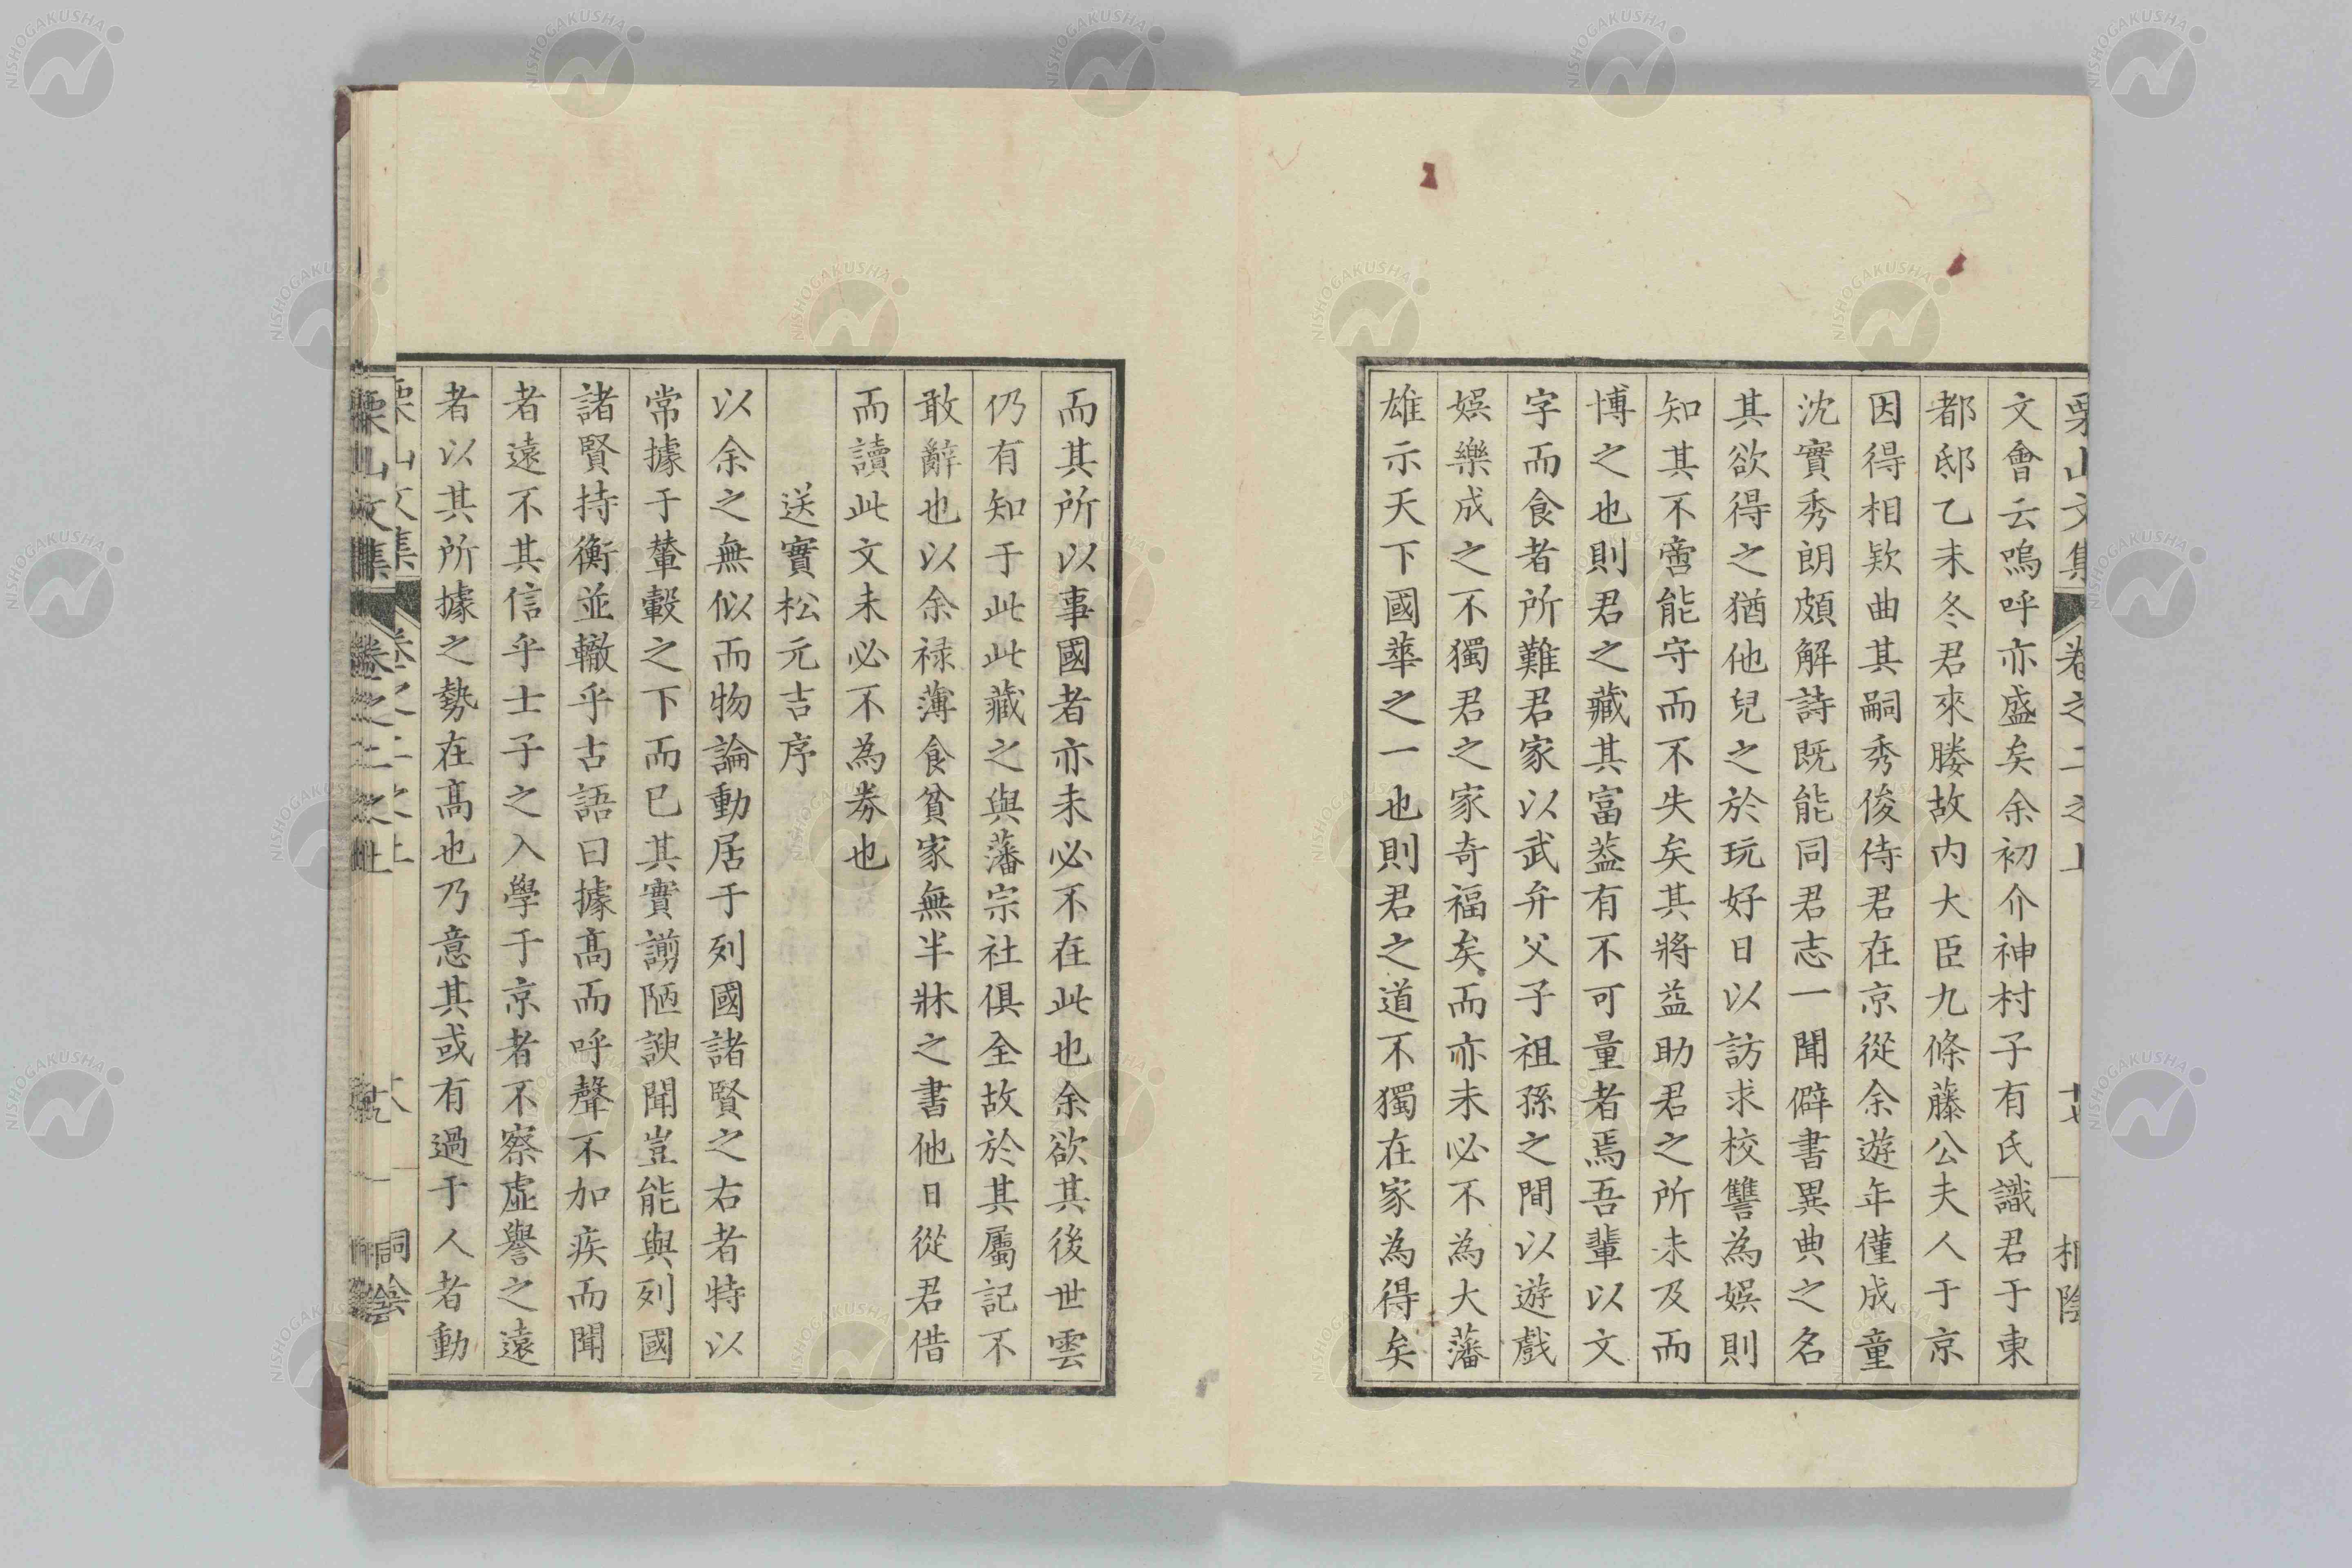 栗山文集 卷之二之上 十七 桐陰
文會云嗚呼亦盛矣余初介神村子有氏識君于東
都邸乙未冬君來媵故内大臣九條藤公夫人于京
因得相欵曲其嗣秀俊侍君在京從余遊年僅成童
沈實秀朗頗解詩既能同君志一聞僻書異典之名
其欲得之猶他兒之於玩好日以訪求校讐為娯則
知其不啻能守而不失矣其將益助君之所未及而
博之也則君之藏其富葢有不可量者焉吾輩以文
字而食者所難君家以武弁父子祖孫之間以遊戲
娯樂成之不獨君之家奇福矣而亦未必不為大藩
雄示天下國華之一也則君之道不獨在家為得矣
而其所以事國者亦未必不在此也余欲其後世雲
仍有知于此此藏之與藩宗社俱全故於其屬記不
敢辭也以余禄薄食貧家無半牀之書他日從君借
而讀此文未必不為劵也
送實松元吉序
以余之無似而物論動居于列國諸賢之右者特以
常據于輦轂之下而已其實謭陋謏聞豈能與列國
諸賢持衡並轍乎古語曰據髙而呼聲不加疾而聞
者遠不其信乎士子之入學于京者不察虛譽之遠
者以其所據之勢在髙也乃意其或有過于人者動
栗山文集 卷之二之上 桐陰